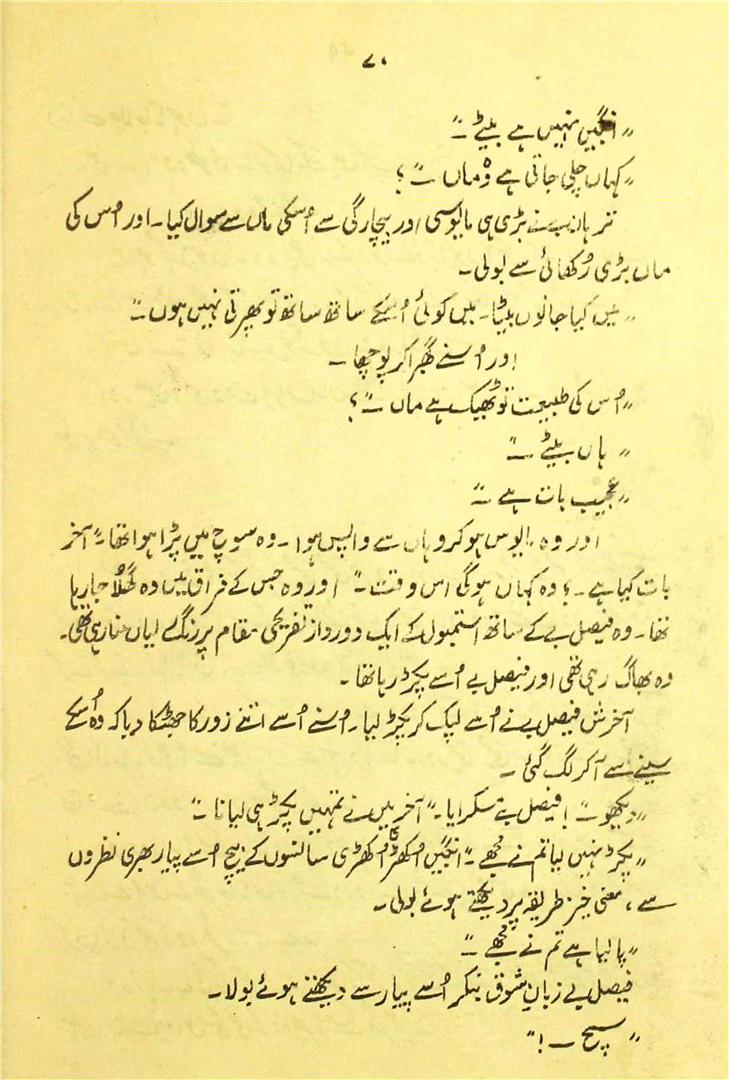 ۷۰
"انجیں نہیں ہے بیٹے ــ"
"کہاں چلی جاتی ہے وہ ماں ــ" ؟
نے بڑی ہی مایوسی اور بیچارگی سے اُسکی ماں سے سوال کیا۔ اور اُس کی
ماں بڑی رُکھائی سے بولی۔
"میں کیا جانوں بیٹا۔ میں کوئی اُسکے ساتھ ساتھ تو پھرتی نہیں ہوں ــ"
اور اُسنے گھبرا کر پوچھا۔
"اُس کی طبیعت تو ٹھیک ہے ماں ــ" ؟
"ہاں بیٹے ــ"
"عجیب بات ہے ــ"
اور وہ مایوس ہو کر وہاں سے واپس ہوا۔ وہ سوچ میں پڑا ہوا تھا۔ "آخر
بات کیا ہے۔ ؟ وہ کہاں ہوگی اس وقت ــ" اور وہ جس کے فراق میں وہ گھُلا جا رہا
تھا۔ وہ فیصل بے کے ساتھ استمبول کے ایک دور دراز تفریحی مقام پر رنگ رلیاں منا رہی تھی۔
وہ بھاگ رہی تھی اور فیصل بے اُسے پکڑ رہا تھا۔
آخرش فیصل بے نے اُسے لپک کر پکڑ لیا۔ اُسنے اُسے اتنے زور کا جھٹکا دیا کہ وہ اُسکے
سینے سے آ کر لگ گئی۔
"دیکھو ــ" ! فیصل بے مسکرایا۔ "آخر میں نے تمہیں پکڑ ہی لیا نا ــ"
"پکڑ نہیں لیا تم نے مجھے ــ" انجیں اُکھڑی اُکھڑی سانسوں کے بیچ اُسے پیار بھری نظروں
سے، معنی خیز طریقہ پر دیکھتے ہوئے بولی۔
"پا لیا ہے تم نے مجھے ــ"
فیصل بے زبانِ شوق بنکر اُسے پیار سے دیکھتے ہوئے بولا۔
"سچ ــ !"